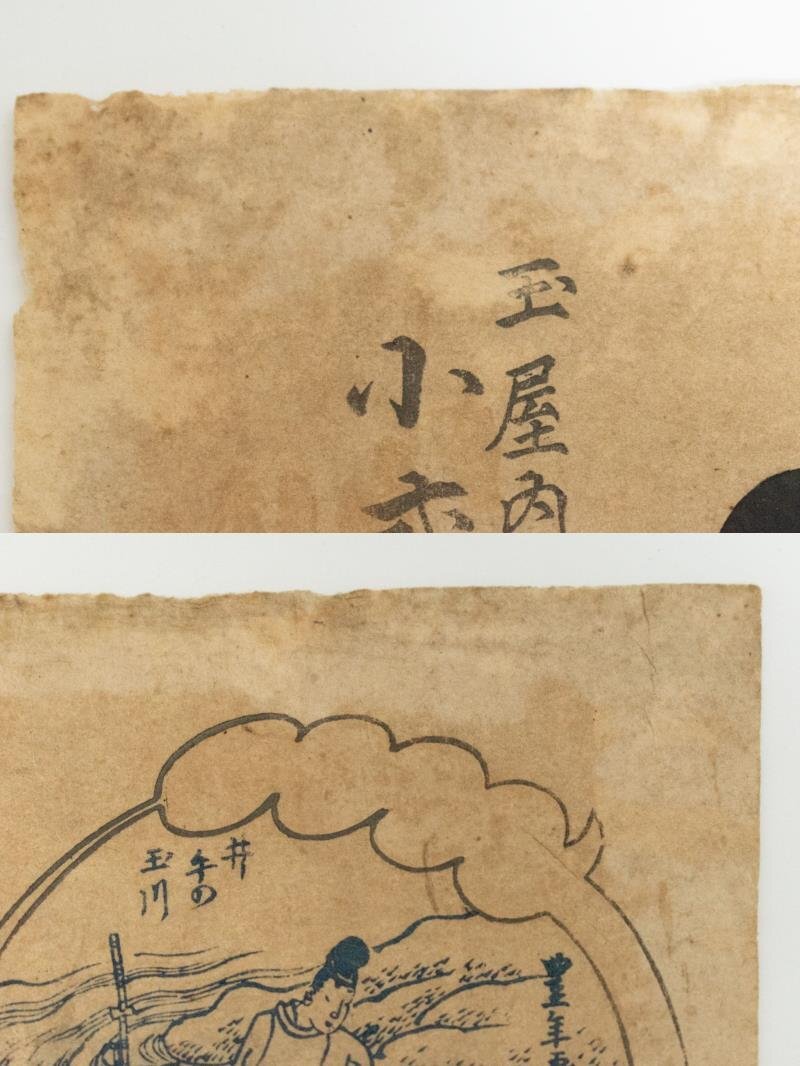 玉屋内
小
井
手の
玉川
豊年